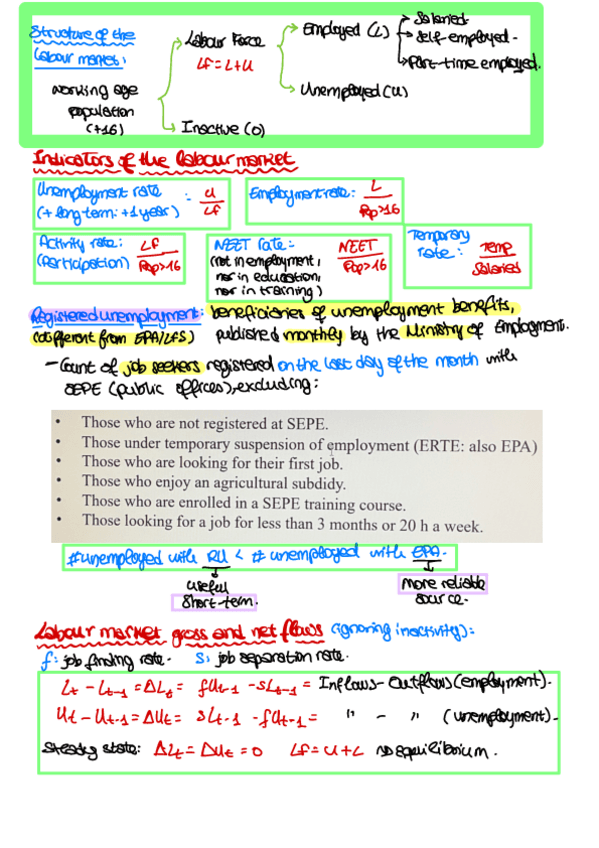 Structure of the
labour market:
working age
population
(+16)
Labour Force
LF = L+U
Inactive (O)
Employed (L)
Unemployed (U)
Salaried
Self-employed.
Part-time employed.
Indicators of the labour market
Unemployment rate
(+ long term: +1 year) : U/LF
Employment rate: L/Pop>16
Activity rate:
(Participation) LF/Pop>16
NEET rate:
(not in employment,
nor in education,
nor in training) NEET/Pop>16
Temporary
rate: Temp/Salaried
Registered unemployment: beneficiaries of unemployment benefits,
(different from EPA/LFS) published monthly by the Ministry of Employment.
- Count of job seekers registered on the last day of the month with
SEPE (public offices), excluding:
• Those who are not registered at SEPE.
• Those under temporary suspension of employment (ERTE: also EPA)
• Those who are looking for their first job.
• Those who enjoy an agricultural subdidy.
• Those who are enrolled in a SEPE training course.
• Those looking for a job for less than 3 months or 20 h a week.
# unemployed with RU < # unemployed with EPA.
useful
short-term.
more reliable
source.
Labour market gross and net flows (ignoring inactivity):
f: job finding rate. s: job separation rate.
Lt - Lt-1 = ΔLt = fUt-1 - sLt-1 = Inflows - Outflows (employment).
Ut - Ut-1 = ΔUt = sLt-1 - fUt-1 = " - " (unemployment).
Steady state: ΔLt = ΔUt = 0 LF = U+L → equilibrium.